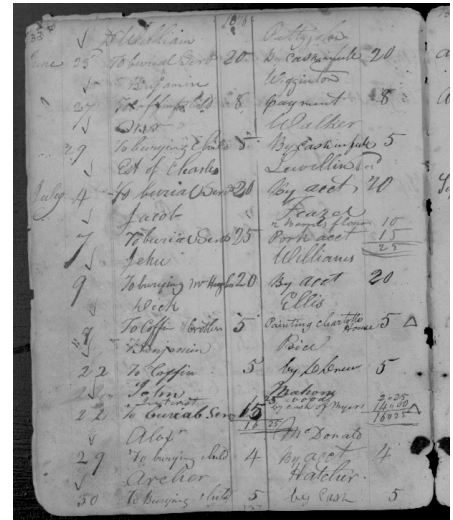 William Pettyjohn
June 25 To burial Serv 20 By Cash in full 20
Benjamin Wigginton
27 To Coffin Child 8 payment 8
Walker
29 To burying Child 5 By Cash in full 5
Est of Charles Lewellin
July 4 To burial Serv 20 By acct 20
Jacob Feazel
10
7 To burial Serv 25 Pork acct 15
25
John Williams
9 To burying Mr Hughes 20 By acct 20
Dick Ellis
To Coffin Brother 5 Painting Charlotte House 5
Benjamin Rice
22 To Coffin 5 by 5
John Mahony
25 wood 2.25
22 To burial Serv 15 by of Myers 14.00
16 25 16.25
Alex McDonald
29 To burying child 4 By acct 4
Archer Hatcher
30 To Burying child 5 by Cash 5